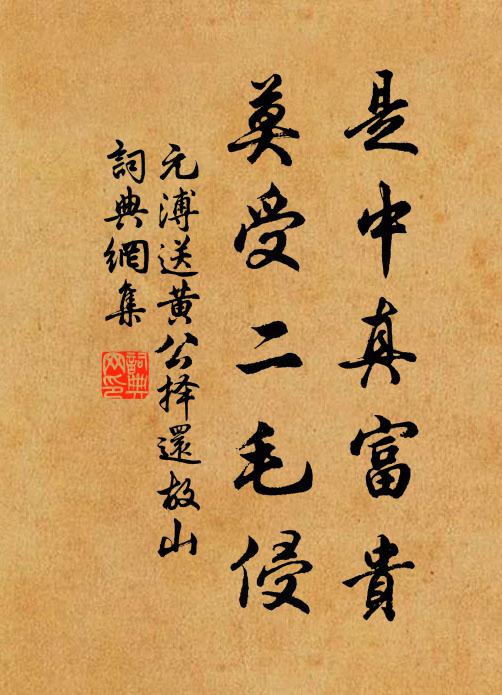 是中真富貴
莫受二毛侵
元溥送黄公择還故山
詞典網集
詞典網印